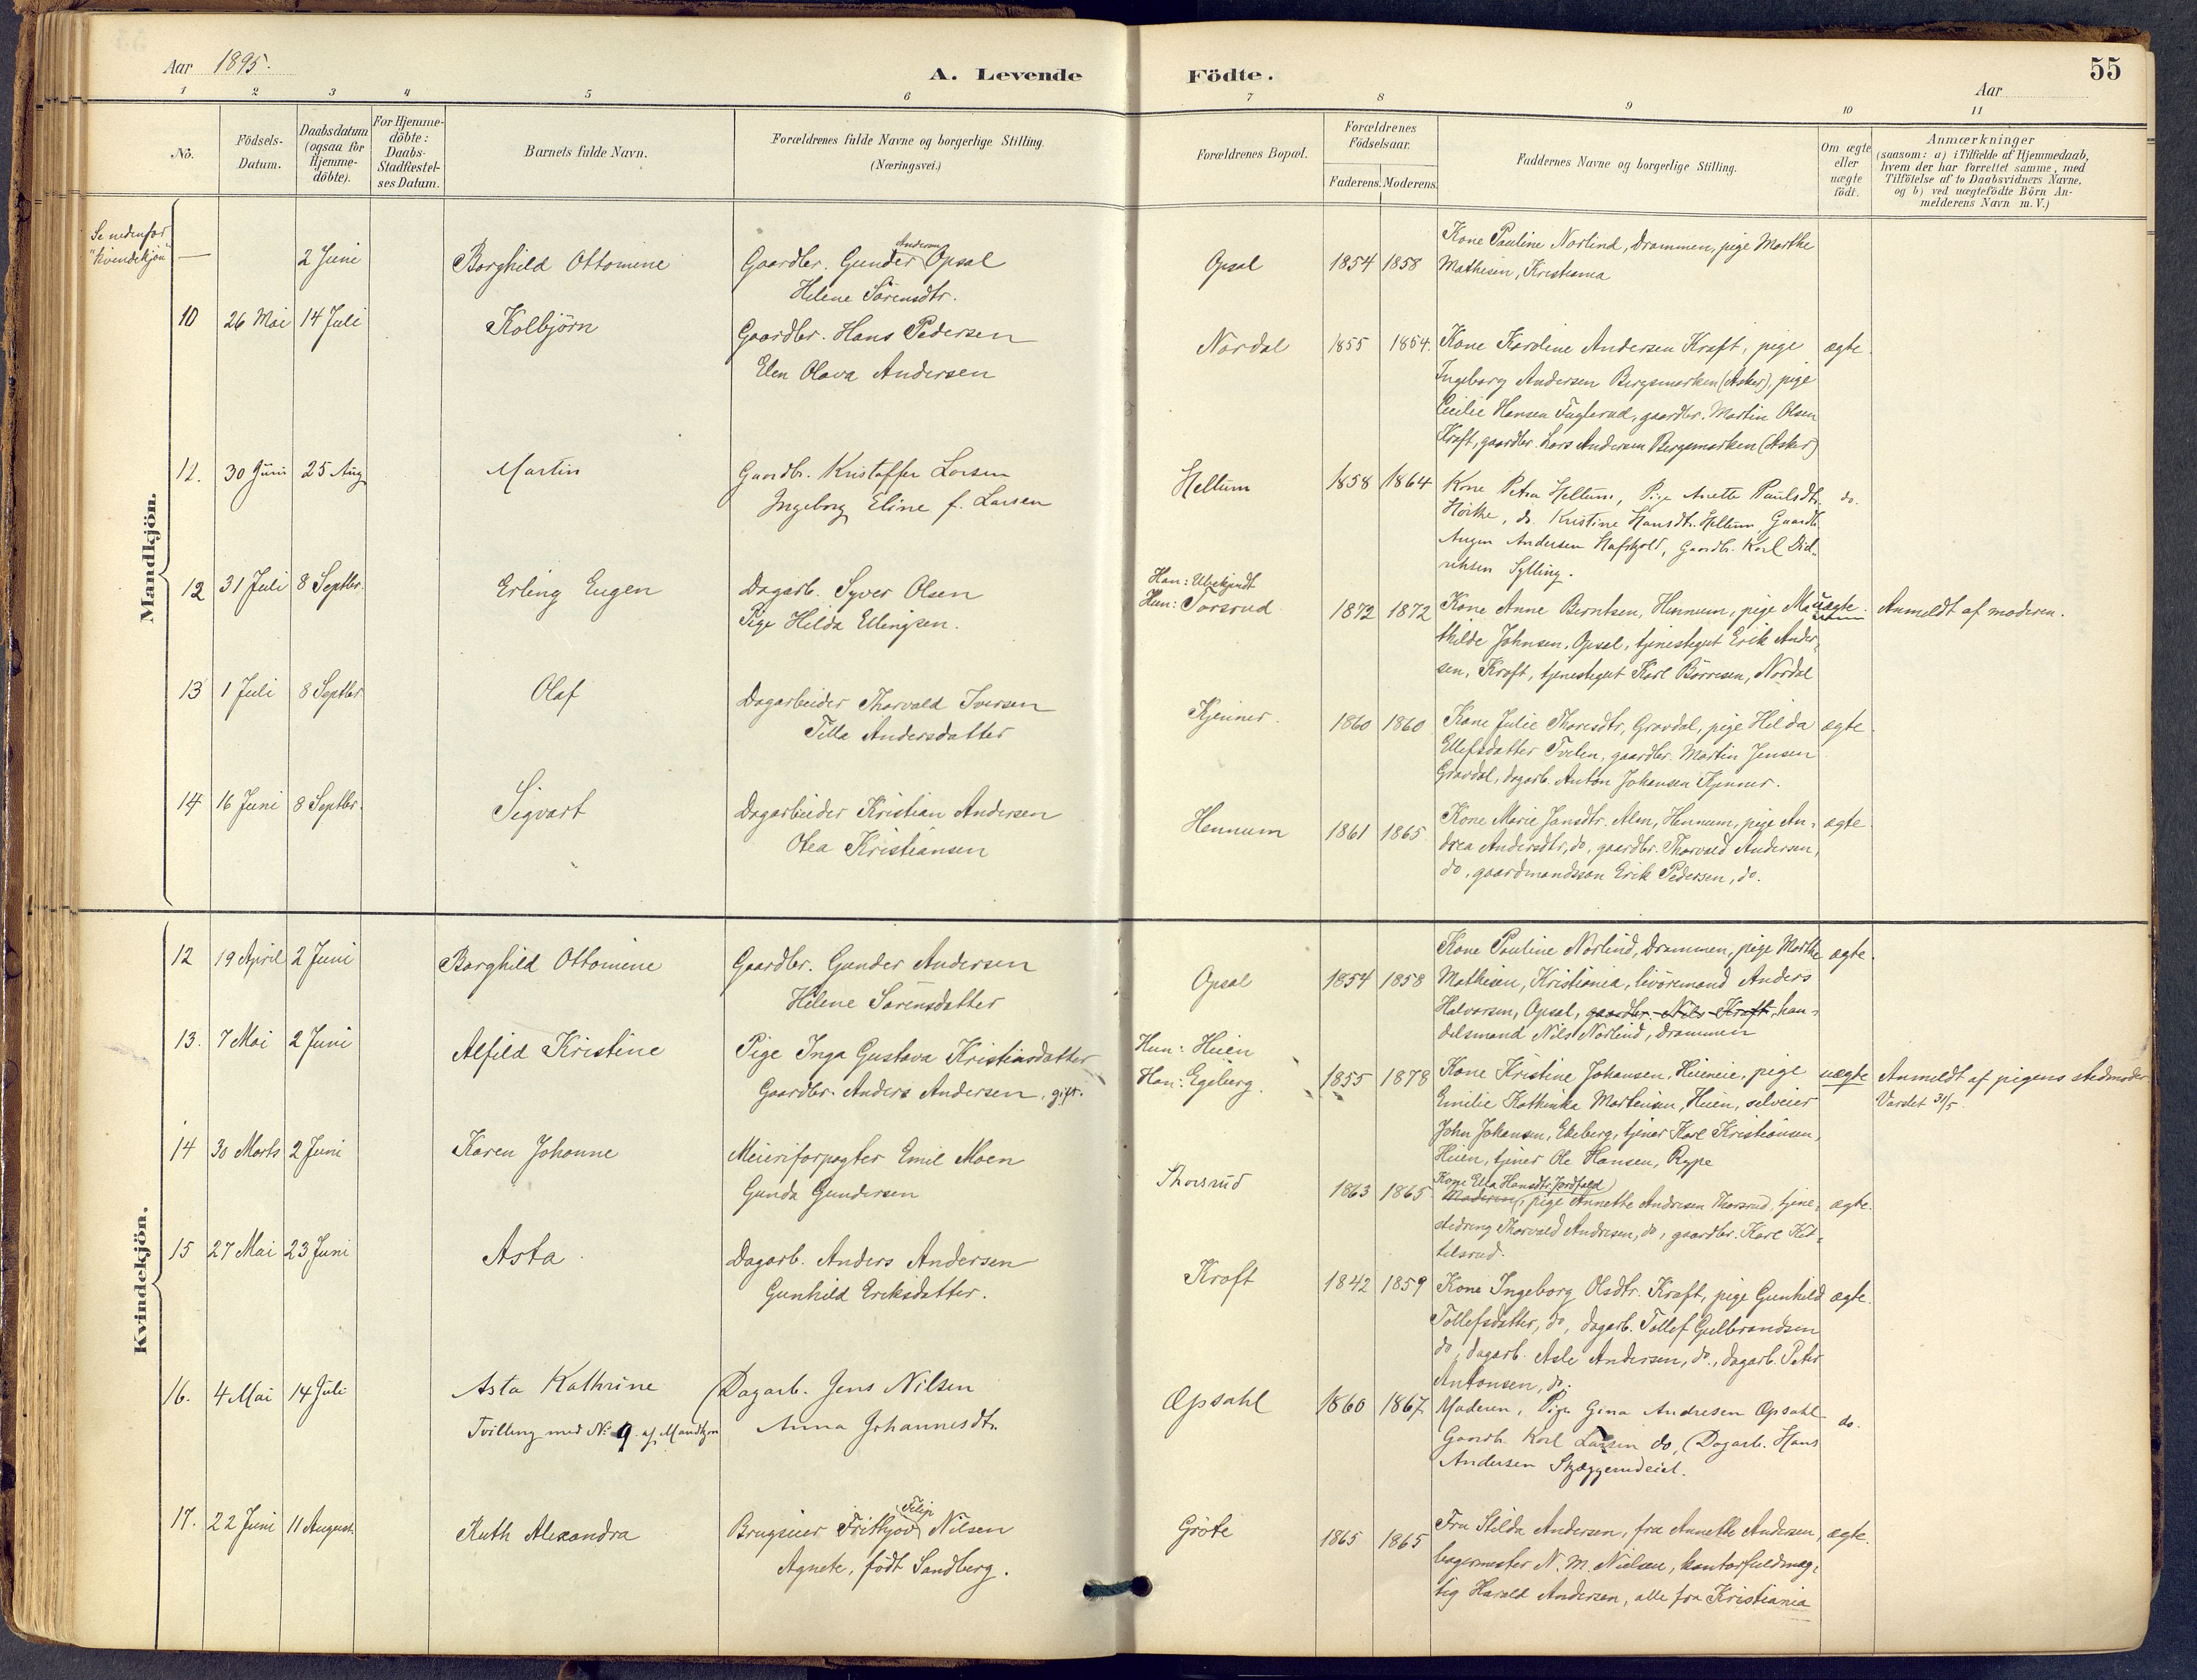 55
Aar 1895.
A. Levende Födte.
Aar
1 2 3 4 5 6 7 8 9 10 11
No.
Födsels-
Datum.
Daabsdatum
(ogsaa for
Hjemme-
döbte).
For Hjemme-
döbte:
Daabs-
Stadfæstel-
ses Datum.
Barnets fulde Navn.
Forældrenes fulde Navne og borgerlige Stilling.
(Næringsvei.)
Forældrenes Bopæl.
Forældrenes
Födselsaar.
Faderens. Moderens.
Faddernes Navne og borgerlige Stilling.
Om ægte
eller
uægte
födt.
Anmærkninger
(saasom: a) i Tilfælde af Hjemmedaab,
hvem der har forrettet samme, med
Tilföielse af to Daabsvidners Navne,
og b) ved uægtefödte Börn An-
melderens Navn m. V.)
Mandkjön.
Se nedenfor
"Kvindekjön"
— 2 Juni Borghild Ottomine
Gaardbr. Gunder Andersen Opsal
Helene Sörensdtr.
Opsal 1854 1858
Kone Pauline Norlind, Drammen, pige Marthe
Mathisen, Kristiania
10 26 Mai 14 Juli Kolbjörn
Gaardbr. Hans Pedersen
Elen Olava Andersen
Nordal 1855 1854.
Kone Karoline Andersen Kraft, pige
Ingeborg Andersen Bergsmarken (Asker), pige
Cecilie Hansen Fuglerud, gaardbr. Martin Olsen
Kraft, gaardbr. Lars Andersen Bergsmarken (Asker)
ægte.
11. 30 Juni 25 Aug Martin
Gaardbr. Kristoffer Larsen
Ingeborg Eline f. Larsen
Hellum 1858 1864
Kone Petra Hellum, Pige Anette Paulsdtr.
do. Kristine Hansdtr. Hellum, Gaardb.
Andersen Gaardb. Karl Did-
riksen Sylling.
do.
12 31 Juli 8 Septbr. Erling Eugen
Dagarb. Syver Olsen
Pige Hilda Ellingsen.
Han: Ubekjendt
Hun: Torsrud 1872 1872
Kone Anne Berntsen, Hennum, pige Ma-
thilde Johnsen, Opsal, tjenestegut Erik Ander-
sen, Kraft, tjenestegut Karl Börresen, Nordal
uægte.
Anmeldt af moderen.
13 1 Juli 8 Septbr Olaf
Dagarbeider Thorvald Iversen
Tilla Andersdatter
Kjenner. 1860 1860
Kone Julie Thoresdtr, Gravdal, pige Hilda
Ellefsdatter Tvelen, gaardbr. Martin Jensen
Gravdal, dagarb. Anton Johansen Kjenner.
ægte.
14 16 Juni 8 Septbr. Sigvart
Dagarbeider Kristian Andersen
Olea Kristiansen
Hennum 1861 1865
Kone Marie Jansdtr. Alm, Hennum, pige An-
drea Andersdtr, do, gaardbr. Thorvald Andersen,
do, gaardmandssön Erik Pedersen, do.
ægte.
Kvindekjön.
12 19 April 2 Juni Borghild Ottomine
Gaardbr. Gunder Andersen
Helene Sörensdatter
Opsal 1854 1858
Kone Pauline Norlind, Drammen, pige Marthe
Mathisen, Kristiania, livöremand Anders
Halvorsen, Opsal, gaardbr. Nils Kraft, han-
delsmand Nils Norlind, Drammen
ægte.
13. 7 Mai 2 Juni Alfild Kristine
Pige Inga Gustava Kristiansdatter
Gaardbr. Anders Andersen, gift.
Hun: Huien
Han: Egeberg. 1855 1878
Kone Kristine Johansen, Huieneie, pige
Emilie Kathinka Martensen, Huien, selveier
John Johansen, Ekeberg, tjener Karl Kristiansen,
Huien, tjener Ole Hansen, Rype
uægte
Anmeldt af pigens stedmoder
Varslet 31/5.
14 30 Marts 2 Juni Karen Johanne
Meieriforpagter Emil Moen
Gunda Gundersen
Thorsrud 1863 1865
Kone Ella Hansdtr. Jordfald
Moderen, pige Annette Andresen Thorsrud, tjene-
stedreng Thorvald Andresen, do, gaardbr. Karl Ket-
telsrud.
ægte.
15 27 Mai 23 Juni Asta
Dagarb. Anders Andersen
Gunhild Eriksdatter.
Kraft 1842 1859
Kone Ingeborg Olsdtr. Kraft, pige Gunhild
Tollefsdatter, do, dagarb. Tollef Gulbrandsen
do, dagarb. Asle Andersen, do., dagarb. Peter
Antonsen, do.
ægte.
16. 4 Mai 14 Juli Asta Kathrine
Tvilling med No 9 af Mandkjön
Dagarb. Jens Nilsen
Anna Johannesdtr.
Opsahl 1860 1867
Moderen, Pige Gina Andresen Opsahl
Gaardb. Karl Larsen do, Dagarb. Hans
Andersen Skjæggerudeiet.
do.
17. 22 Juni 11 August. Ruth Alexandra
Brugseier Frithjov Filip Nilsen
Agnete, födt Sandberg.
Gröte 1865 1865
Fru Hilda Andersen, fru Annette Andersen,
bagermester N. M. Nielsen, kontorfuldmæg-
tig Harald Andersen, alle fra Kristiania
ægte.